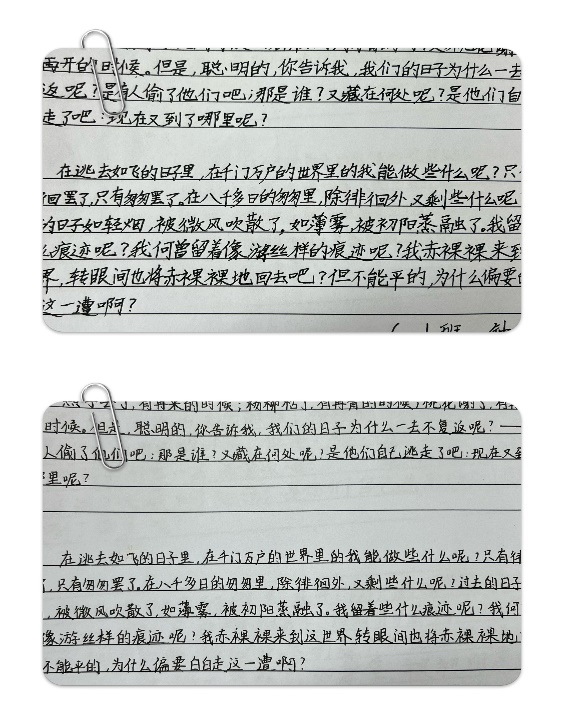 再开的时候。但是,聪明的,你告诉我,我们的日子为什么一去
返呢?是有人偷了他们吧:那是谁?又藏在何处呢?是他们自
走了吧:现在又到了哪里呢?
在逃去如飞的日子里,在千门万户的世界里的我能做些什么呢?只
徊罢了,只有匆匆罢了。在八千多日的匆匆里,除徘徊外,又剩些什么呢
的日子如轻烟,被微风吹散了,如薄雾,被初阳蒸融了。我留
么痕迹呢?我何曾留着像游丝样的痕迹呢?我赤裸裸来到
界,转眼间也将赤裸裸地回去吧?但不能平的,为什么偏要
这一遭啊?
有再来的时候;杨柳枯了,有再青的时候;桃花谢了,有
时候。但是,聪明的,你告诉我,我们的日子为什么一去不复返呢?——
人偷了他们吧:那是谁?又藏在何处呢?是他们自己逃走了吧:现在又到
里呢?
在逃去如飞的日子里,在千门万户的世界里的我能做些什么呢?只有徘
了,只有匆匆罢了。在八千多日的匆匆里,除徘徊外,又剩些什么呢?过去的日子
,被微风吹散了,如薄雾,被初阳蒸融了。我留着些什么痕迹呢?我何
像游丝样的痕迹呢?我赤裸裸来到这世界,转眼间也将赤裸裸地
不能平的,为什么偏要白白走这一遭啊?